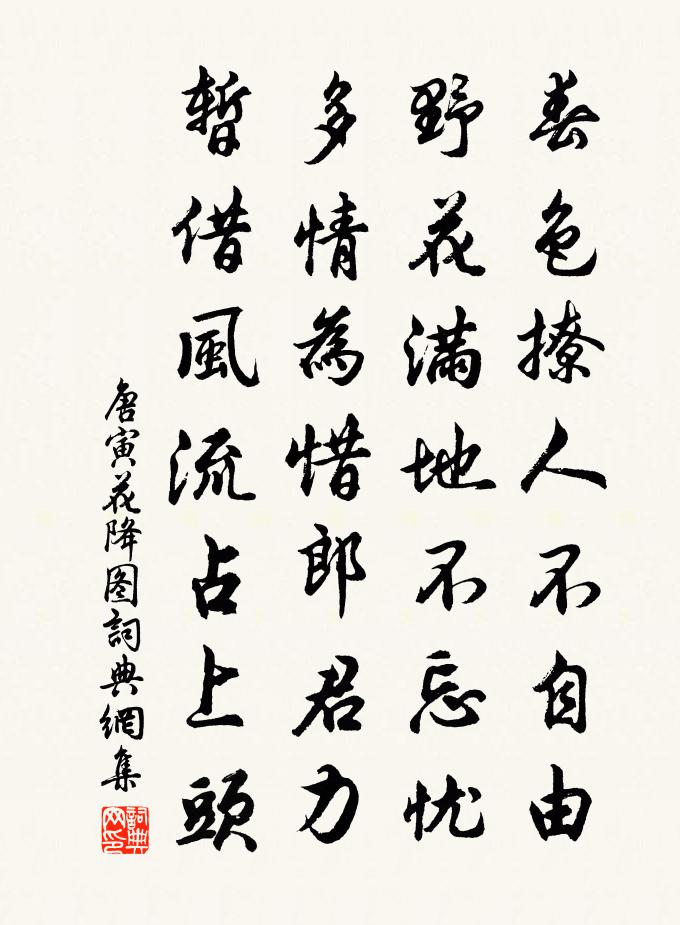 春色撩人不自由
野花满地不忘忧
多情為惜郎君力
暫借風流占上頭
唐寅花降图詞典網集
詞典网印